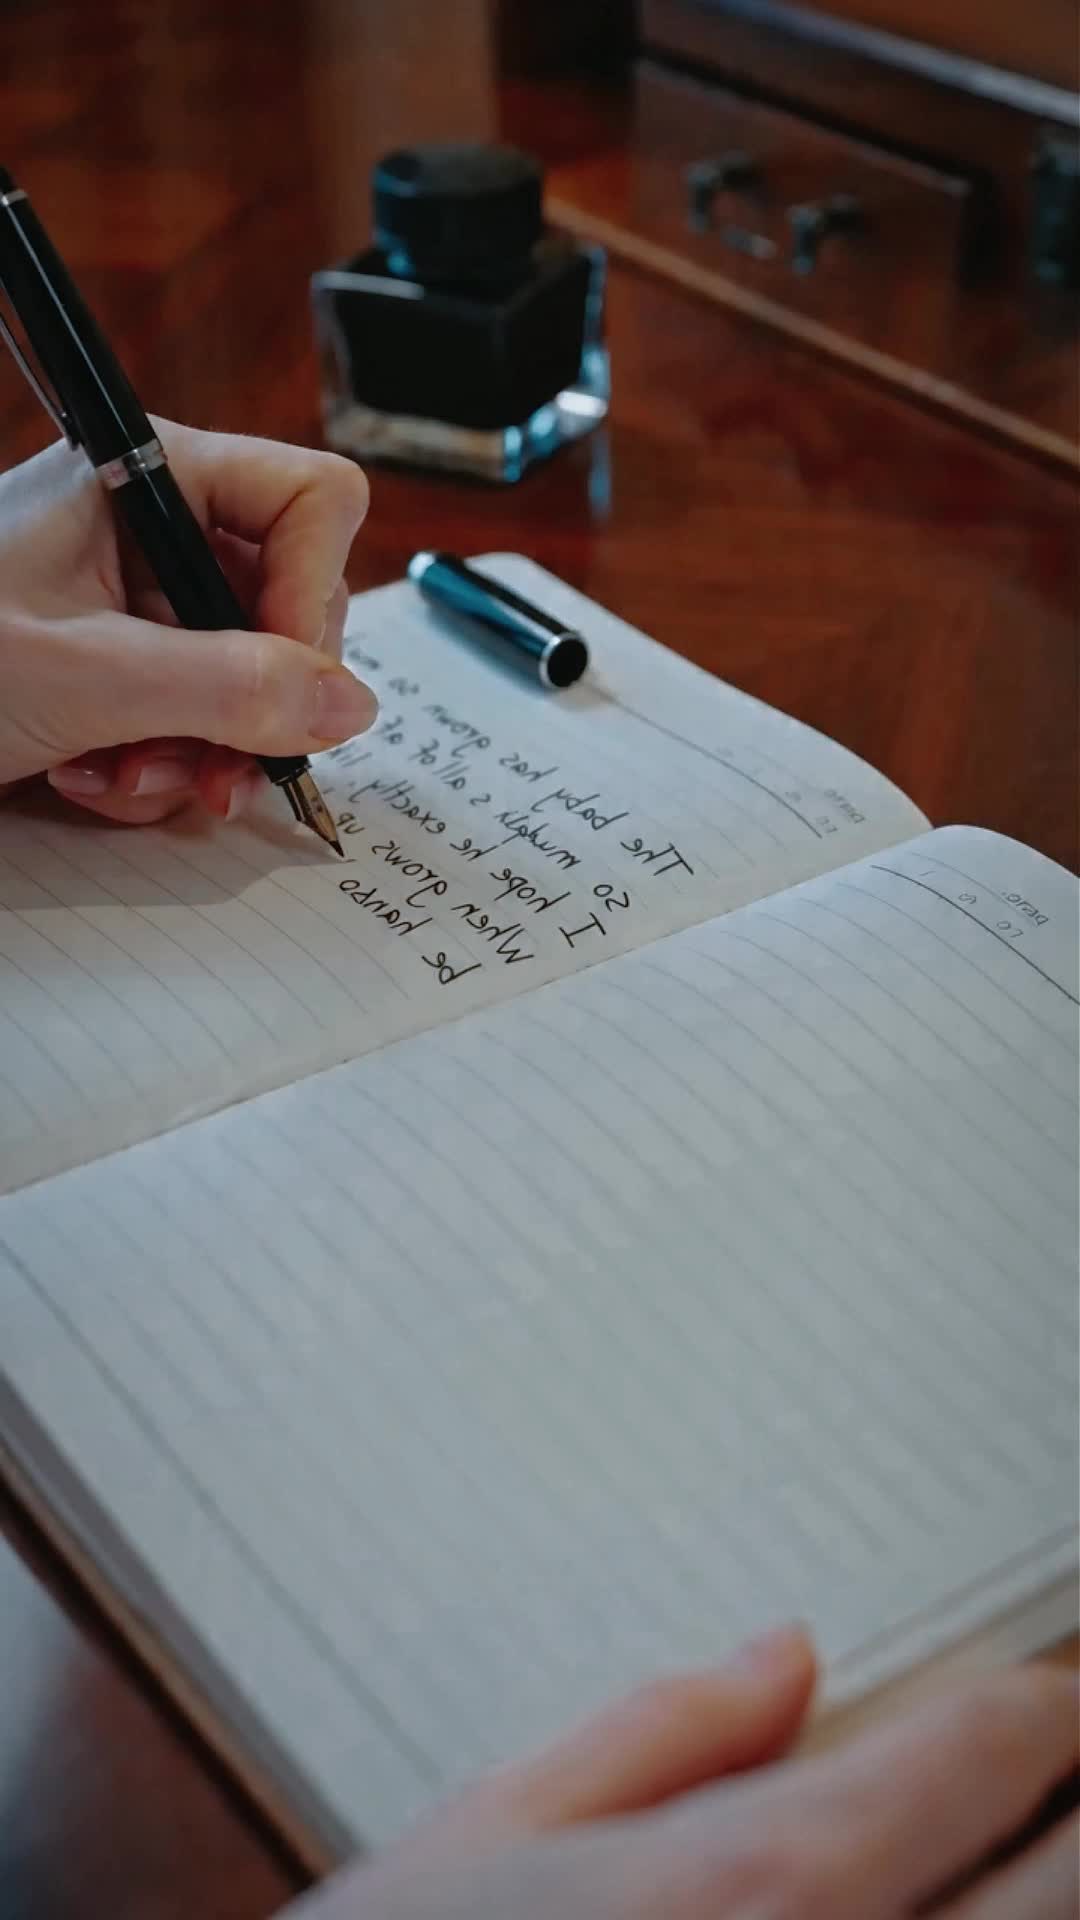 The baby has grown so mu
so mumgh s allof at
I hope he exactly, lik
When grows up,
be hanso